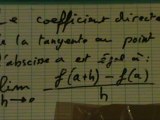 e coefficient direct
e la tangente au point
l'abscisse a est égal à:
lim f(a+h) - f(a)
h→0 h